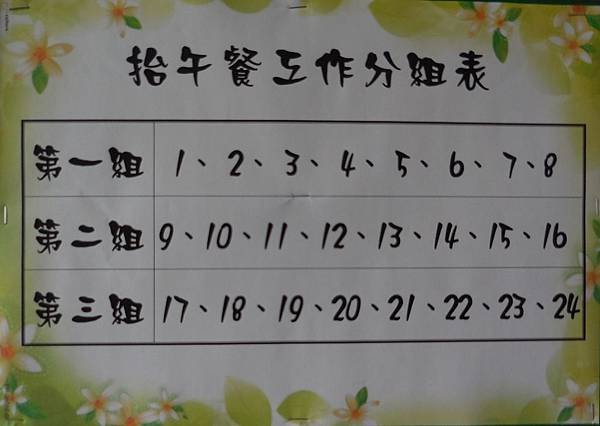 抬午餐工作分組表
第一組 1、2、3、4、5、6、7、8
第二組 9、10、11、12、13、14、15、16
第三組 17、18、19、20、21、22、23、24